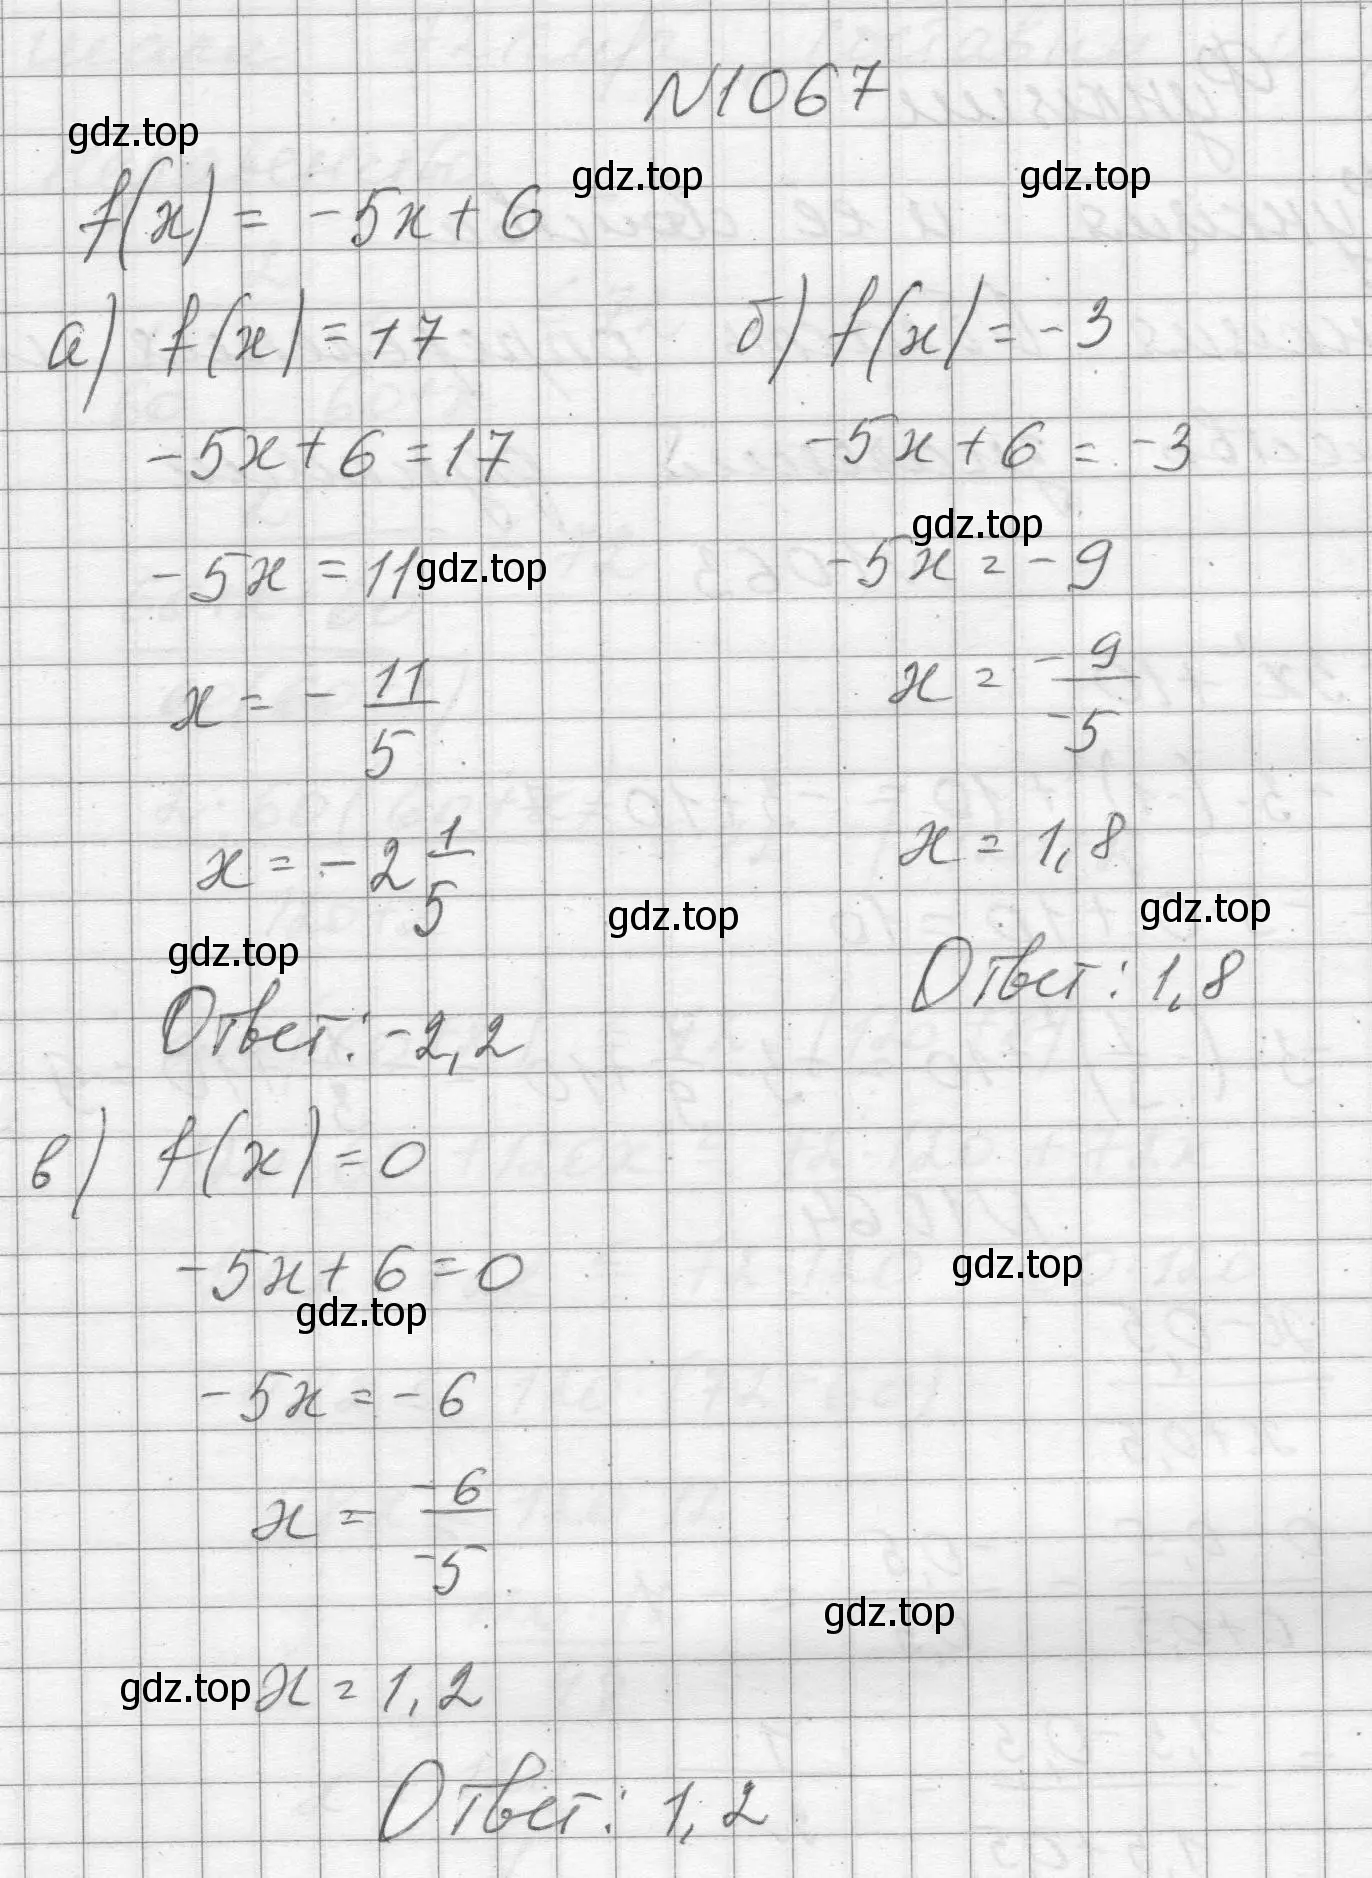 N1067
gdz.top
gdz.top
gdz.top
f(x) = -5x+6
а) f(x)=17
-5x+6=17
-5x=11
gdz.top
x = - 11/5
x = -2 1/5
gdz.top
gdz.top
Ответ: -2,2
б) f(x)=-3
-5x+6=-3
gdz.top
-5x=-9
x = -9/-5
x = 1,8
gdz.top
Ответ: 1,8
в) f(x)=0
-5x+6=0
gdz.top
gdz.top
-5x=-6
x = -6/-5
gdz.top
gdz.top
x = 1,2
Ответ: 1,2